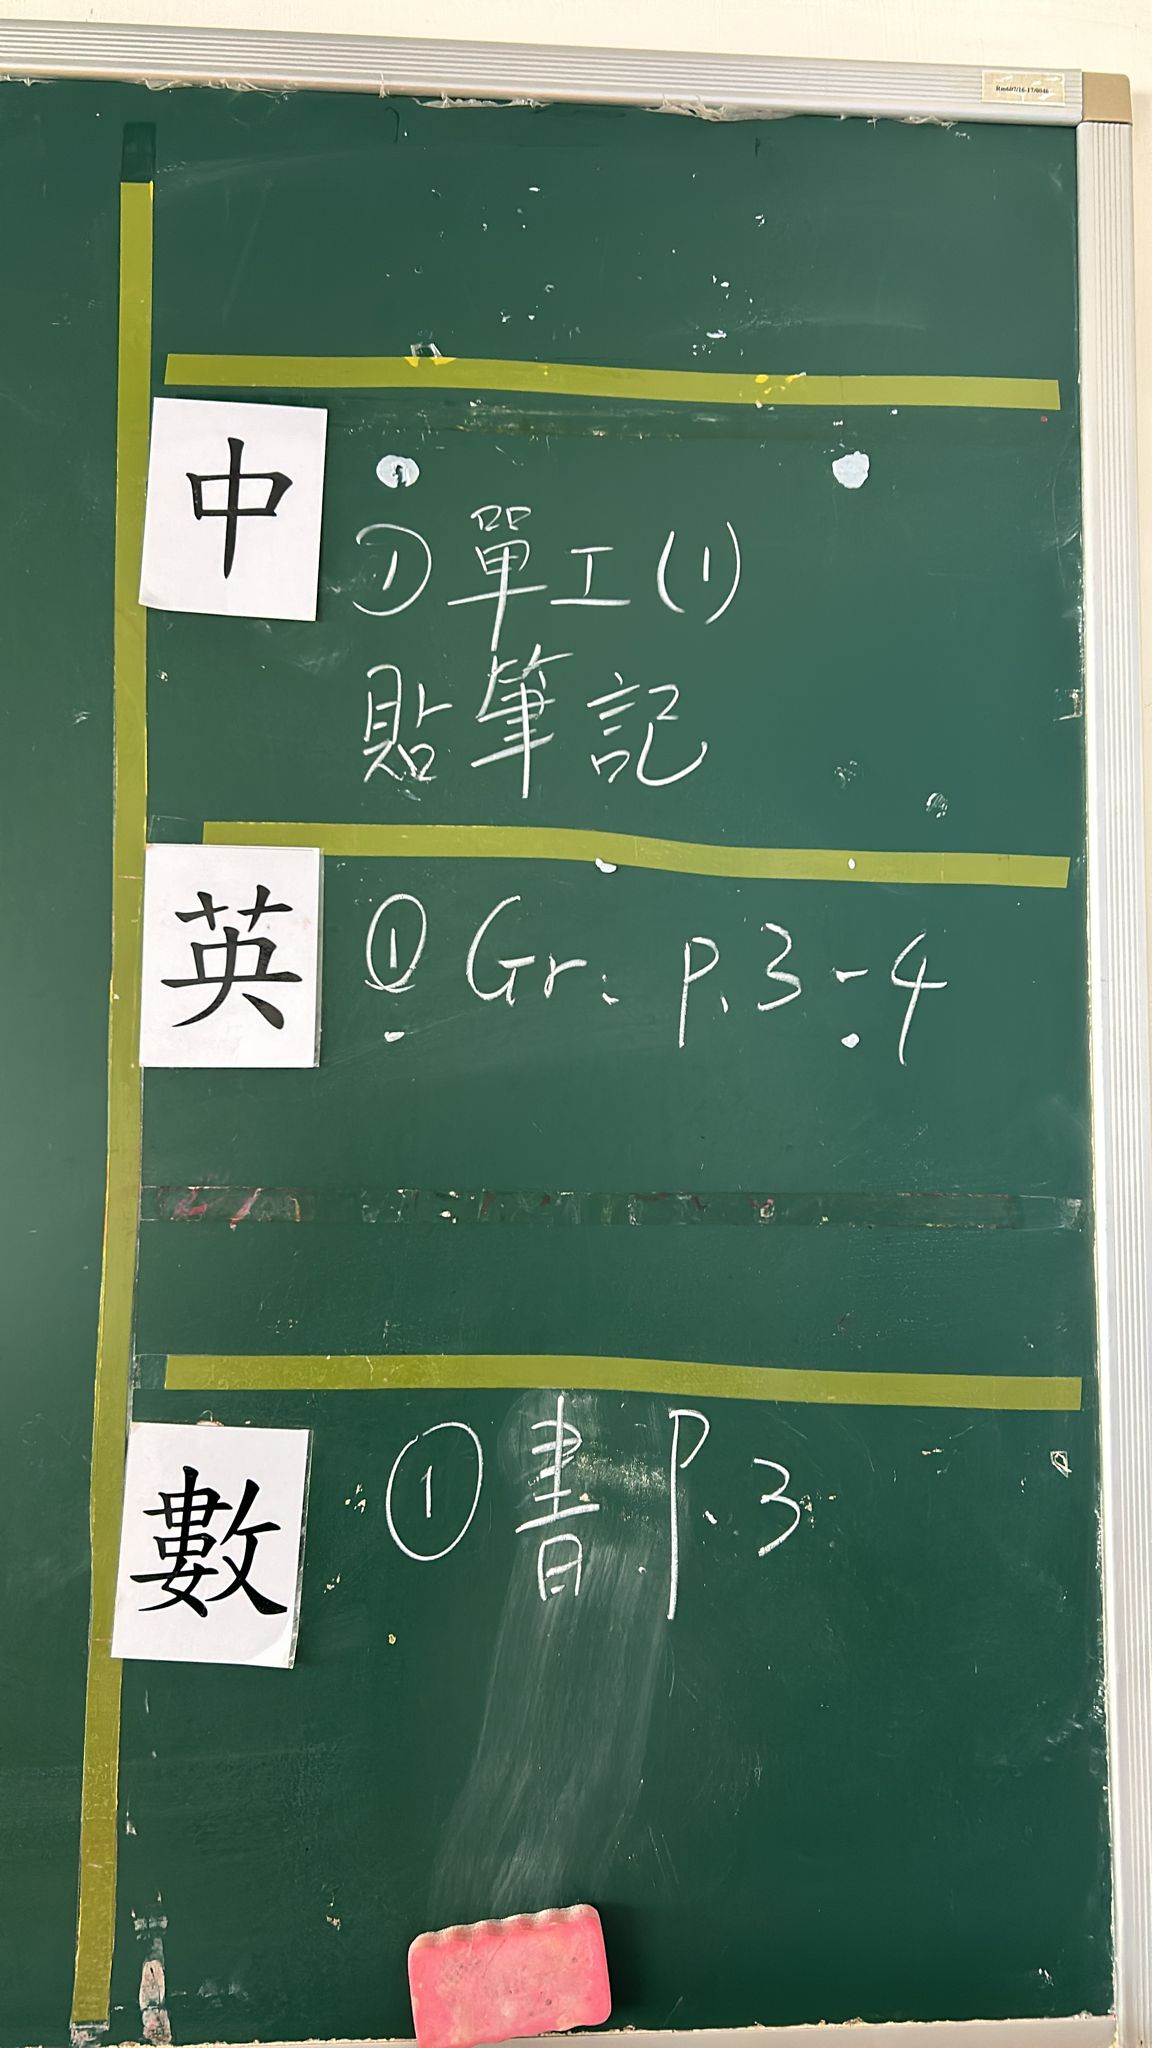 中
① 單工(1)
貼筆記
英
① Gr. p.3-4
數
① 書 P.3